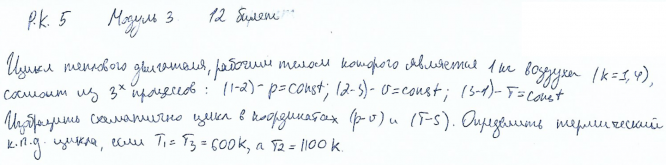 Р.К. 5 Модуль 3 12 билет
Цикл теплового двигателя, рабочим телом которого является 1 кг воздуха (k=1,4),
состоит из 3х процессов: (1-2)- p=const; (2-3)- υ=const; (3-1)- T=const
Изобразить схематично цикл в координатах (p-υ) и (T-S). Определить термический
к.п.д. цикла, если T1=T3=600K, а T2=1100K.